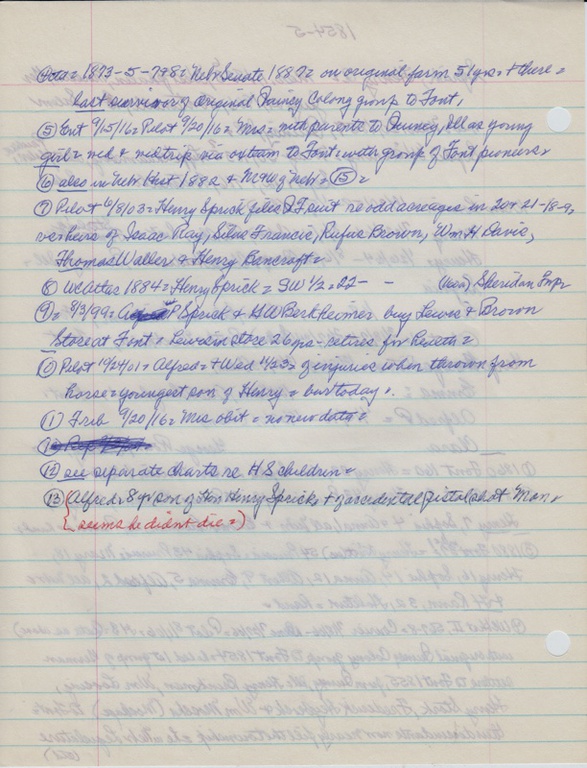 1873-5-79 8= Nebr Senate 1887= on original farm 51 yrs = + there =
last survivor of original Quincy Colony group to Font.
⑤ Ent 9/15/16= Pilot 9/20/16= Mrs = with parents to Quincy, Ill as young
girl = wed & wed trip via oxteam to Font = with group of Font pioneers=
⑥ also in Nebr Hist 1882 & =⑮=
⑦ Pilot 6/8/03= Henry Sprick files & Font re odd acreages in 20 & 21-18-9,
vs heirs of Isaac Ray, Silas Francis, Rufus Brown, Wm H Davis,
Thomas Waller & Henry Bancroft=
⑧ We Atlas 1884= Henry Sprick = SW 1/2 = 22 - - Sheridan Impr
⑨= 8/3/99= P Sprick & HW Berkheimer buy Lewis & Brown
Store at Font = Lewis in store 26 yrs - retires for health=
⑩ Pilot 10/24/01= Alfred= + Wed of injuries when thrown from
horse= youngest son of Henry = bur today=
⑪ Trib 9/20/16= Mrs obit = no new data=
⑫ see separate charts re HS children=
⑬ (Alfred= 8 yr son of Hon Henry Spricks + of accidental pistol shot Mon=
(seems he didn't die=)